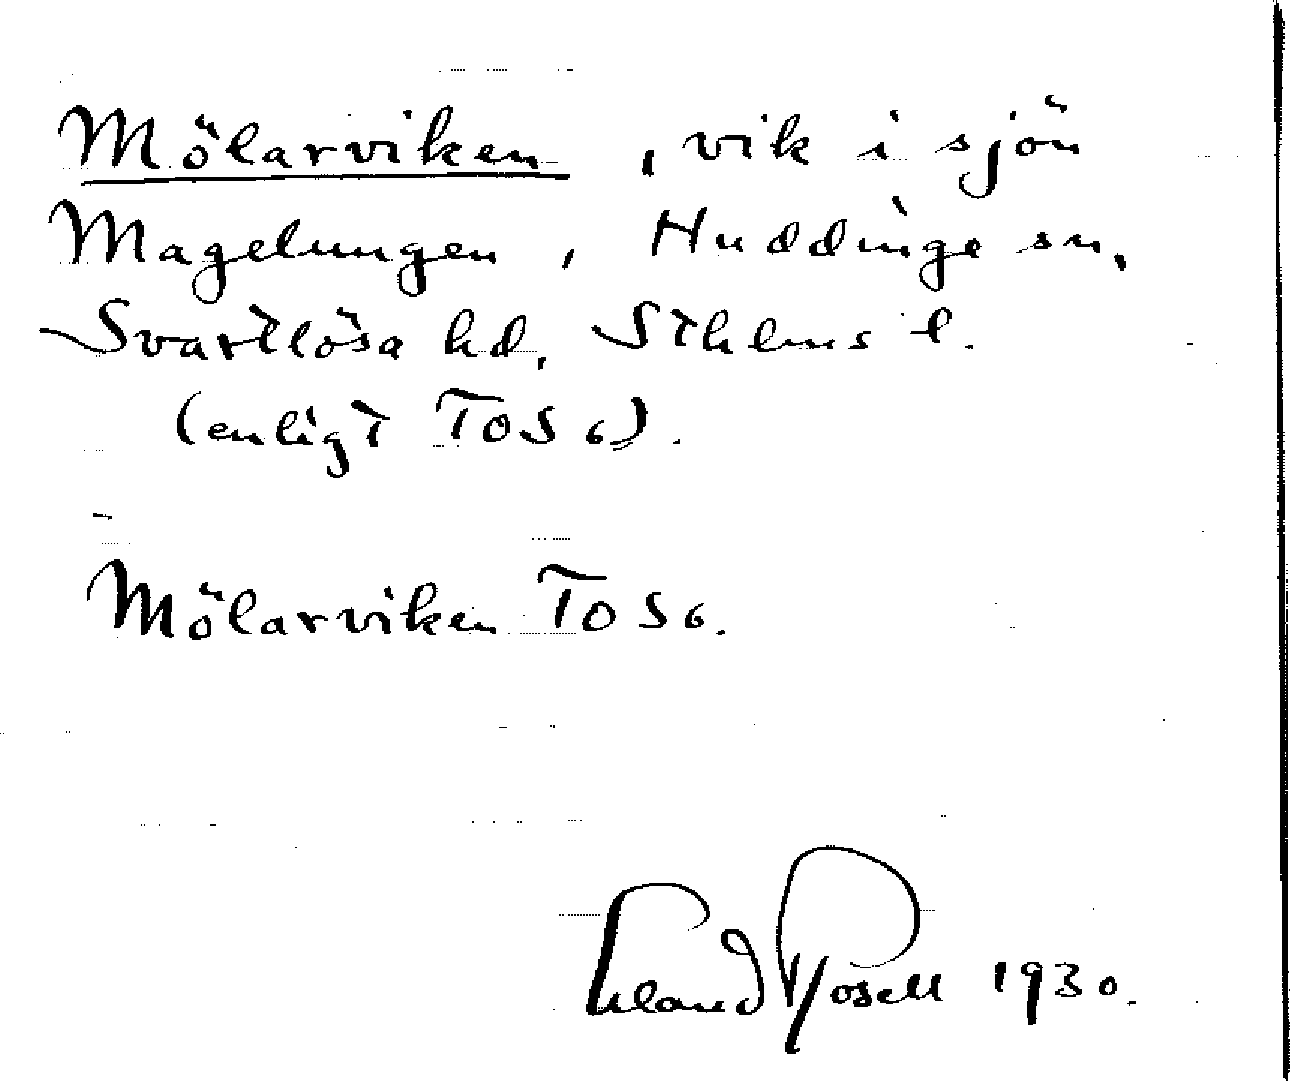 Mölarviken, vik i sjön
Magelungen, Huddinge sn,
Svartlösa hd, Sthlms l.
(enligt TOS 6).
Mölarviken TOS 6.
Erland Rosell 1930.